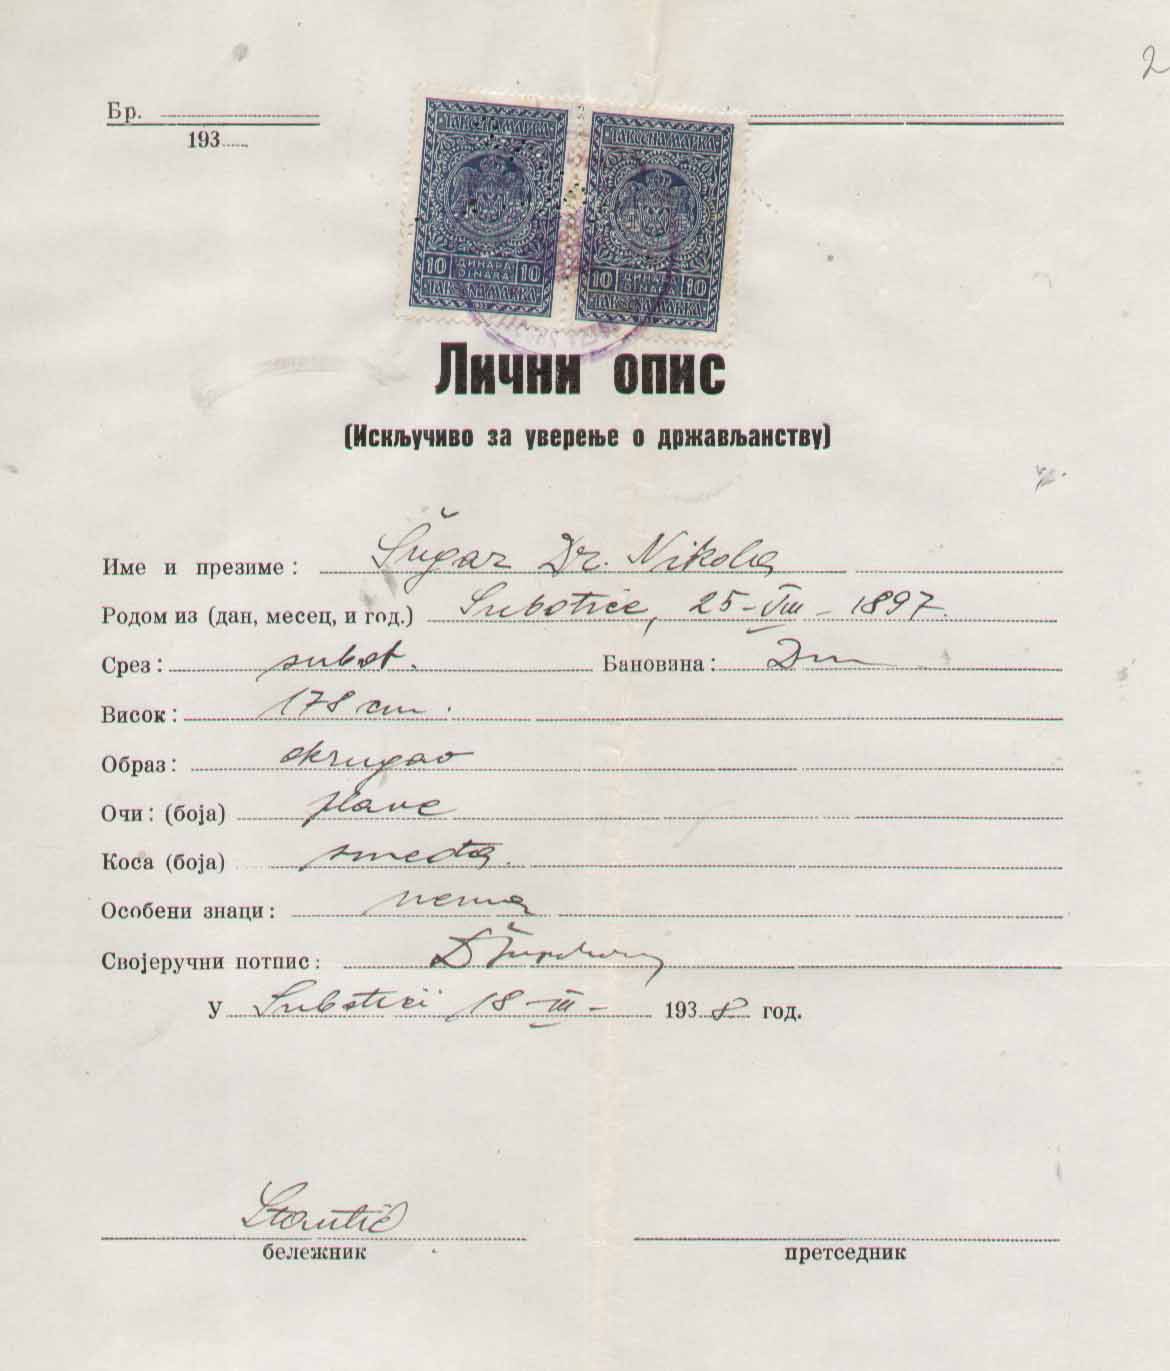 2
Бр.
193
ТАКСЕНА МАРКА ТАКСЕНА МАРКА
10 ДИНАРА DINARA 10 10 ДИНАРА DINARA 10
TAKSENA MARKA TAKSENA MARKA
Лични опис
(Искључиво за уверење о држављанству)
Име и презиме: Šugar Dr. Nikola
Родом из (дан, месец, и год.) Subotice, 25-VIII-1897.
Срез: subot. Бановина:
Висок: 178 cm.
Образ: okrugao
Очи: (боја) plave
Коса (боја) smeđa.
Особени знаци: nema
Својеручни потпис:
У Subotici 18-III- 1938 год.
Stantić
бележник претседник